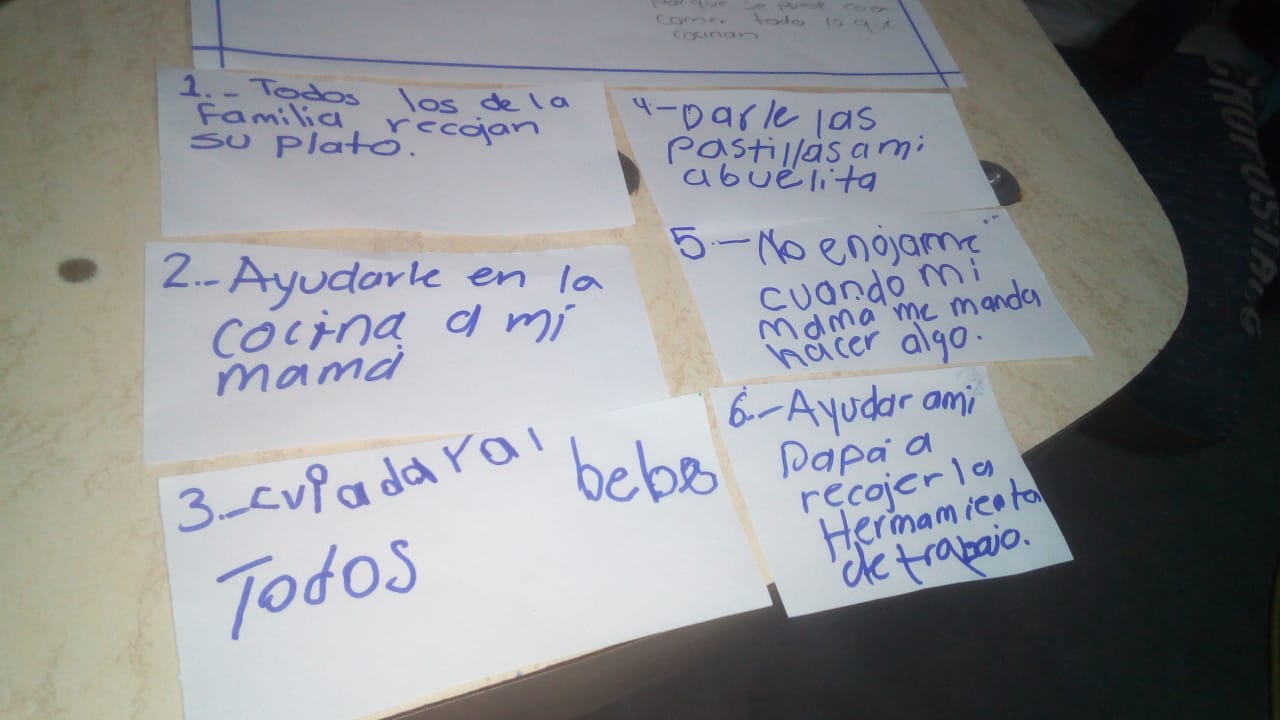 porque se puede
comer todo lo que
cocinan
1.- Todos los de la
familia recojan
su plato.
2.- Ayudarle en la
cocina a mi
mamá
3.- cuiadar al bebe
Todos
4- Darle las
pastillas a mi
abuelita
5.- No enojarme
cuando mi
mama me manda
hacer algo.
6.- Ayudar ami
Papá a
recojer la
Hermamienta
de trabajo.